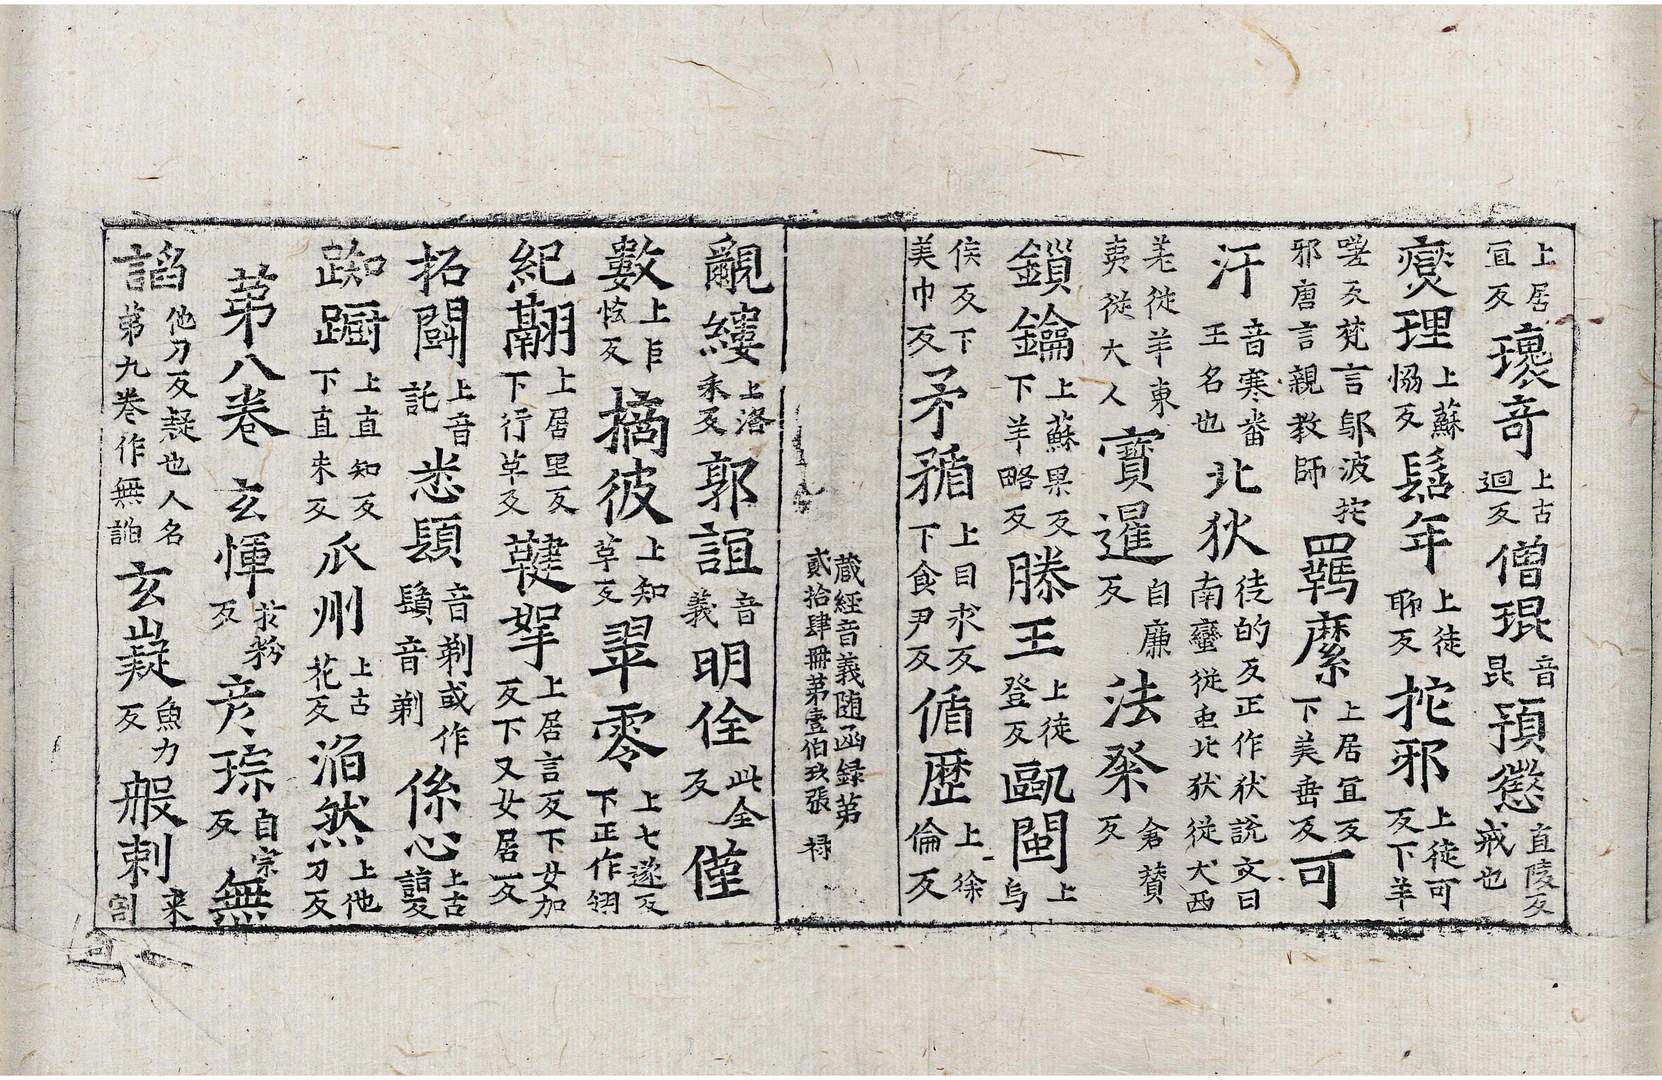 上居宜反瓌奇上古迴反僧琨音昆預懲直陵反戒也
爕理上蘇恊反髫年上徒聊反拕邪上徒可反下羊
嗟反梵言鄔波拕邪唐言親教師羇縻上居宜反下美垂反可
汗音寒番王名也北狄徒的反正作狄說文曰南蠻從虫北狄從犬西
羌從羊東夷從大人寶暹自廉反法粲倉贊反
鎖鑰上蘇果反下羊略反滕王上徒登反甌閩上烏
侯反下美巾反矛䂎上目求反下食尹反偱歷上徐倫反
藏經音義隨函録第貳拾肆冊第壹伯玖張 祿
覼縷上洛禾反郭誼音義明佺此全反僅
數上巨恡反摘彼上知革反翠零上七遂反下正作翎
紀翮上居里反下行革反鞬拏上居言反下女加反下又女居反
拓闘上音託悉䫙音剃或作鬄音剃係心上古詣反
踟躕上直知反下直朱反瓜州上古花反滔然上他刀反
苐八卷 玄惲於粉反彦琮自宗反無
謟他刀反疑也人名第九卷作無䛬玄嶷魚力反般刺來割